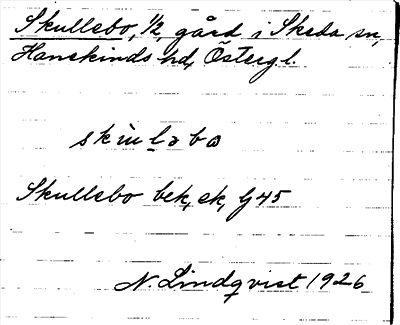 Skullebo, 1/2, gård i Skeda sn,
Hanekinds hd, Östergl.
skùləbo
Skullebo bek, ek, G45
N. Lindqvist 1926